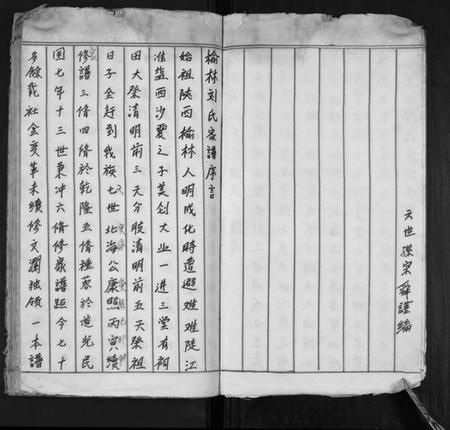 六世孫宗舜謹編
榆林刘氏家譜序言
始祖陝西榆林人明成化時遭避难难陡江
淮盐西沙贾之子美创大业一进三堂有祠
田大祭清明前三天分股清明前五天祭祖
日子全赶到我族七世北海公康熙丙寅續
修譜三修四修於乾隆五修種惹於道光民
国七年十三世秉冲六修修家譜距今七十
多餘载社会变革未續修文瀾独领一本譜